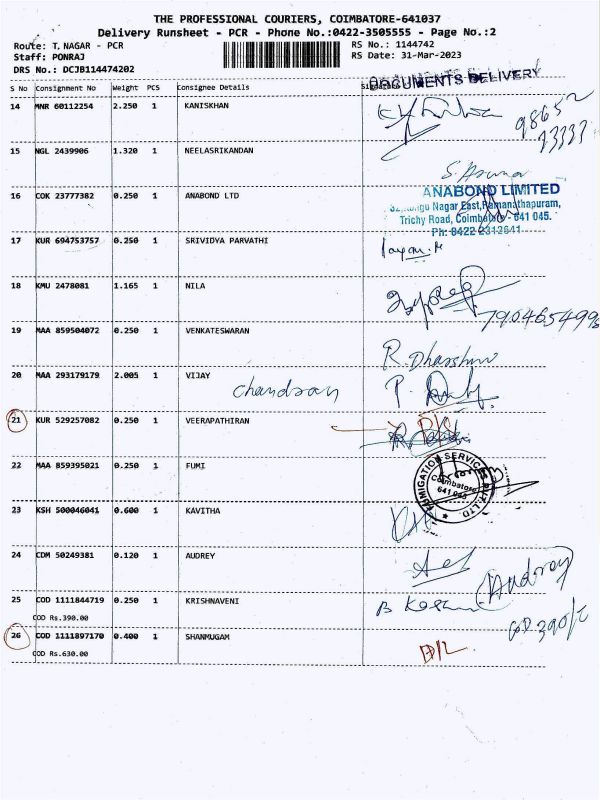 THE PROFESSIONAL COURIERS, COIMBATORE-641037
Delivery Runsheet - PCR - Phone No.:0422-3505555 - Page No.:2
Route: T.NAGAR - PCR
RS No.: 1144742
Staff: PONRAJ
RS Date: 31-Mar-2023
DRS No.: DCJB114474202
DOCUMENTS DELIVERY
S No Consignment No Weight PCS Consignee Details
14 MNR 60112254 2.250 1 KANISKHAN
98652
23333
15 NGL 2439906 1.320 1 NEELASRIKANDAN
S. Aruna
16 COK 23777382 0.250 1 ANABOND LTD
ANABOND LIMITED
Nagar East, Ramanathapuram,
Trichy Road, Coimbatore - 641 045.
Ph: 0422 2312641
17 KUR 694753757 0.250 1 SRIVIDYA PARVATHI
18 KMU 2478081 1.165 1 NILA
7904654998
19 MAA 859504072 0.250 1 VENKATESWARAN
20 MAA 293179179 2.005 1 VIJAY
Chandran
21 KUR 529257082 0.250 1 VEERAPATHIRAN
22 MAA 859395021 0.250 1 FUMI
FUMIGATION SERVICES PVT. LTD.
Coimbatore
641 045
23 KSH 500046041 0.600 1 KAVITHA
24 CDM 50249381 0.120 1 AUDREY
Audrey
25 COD 1111844719 0.250 1 KRISHNAVENI
COD Rs.390.00
COD 390/-
26 COD 1111897170 0.400 1 SHANMUGAM
COD Rs.630.00
D/L